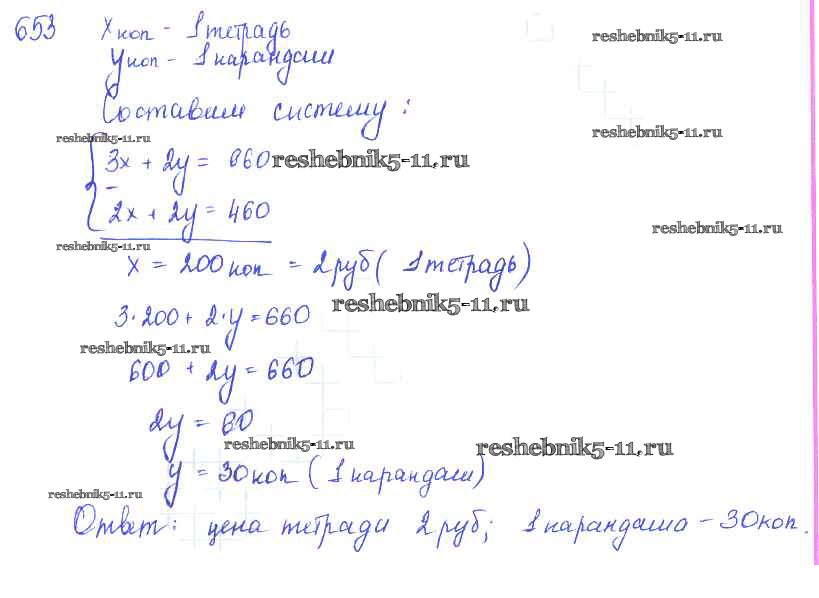 653 х коп - 1 тетрадь
reshebnik5-11.ru
у коп - 1 карандаш
Составим систему:
reshebnik5-11.ru
reshebnik5-11.ru
3х + 2у = 660 reshebnik5-11.ru
-
2х + 2у = 460
reshebnik5-11.ru
reshebnik5-11.ru
х = 200 коп = 2 руб ( 1 тетрадь)
reshebnik5-11.ru
3·200 + 2·у = 660
reshebnik5-11.ru
600 + 2у = 660
2у = 60
reshebnik5-11.ru
reshebnik5-11.ru
у = 30 коп ( 1 карандаш)
reshebnik5-11.ru
Ответ: цена тетради 2 руб; 1 карандаша - 30 коп.